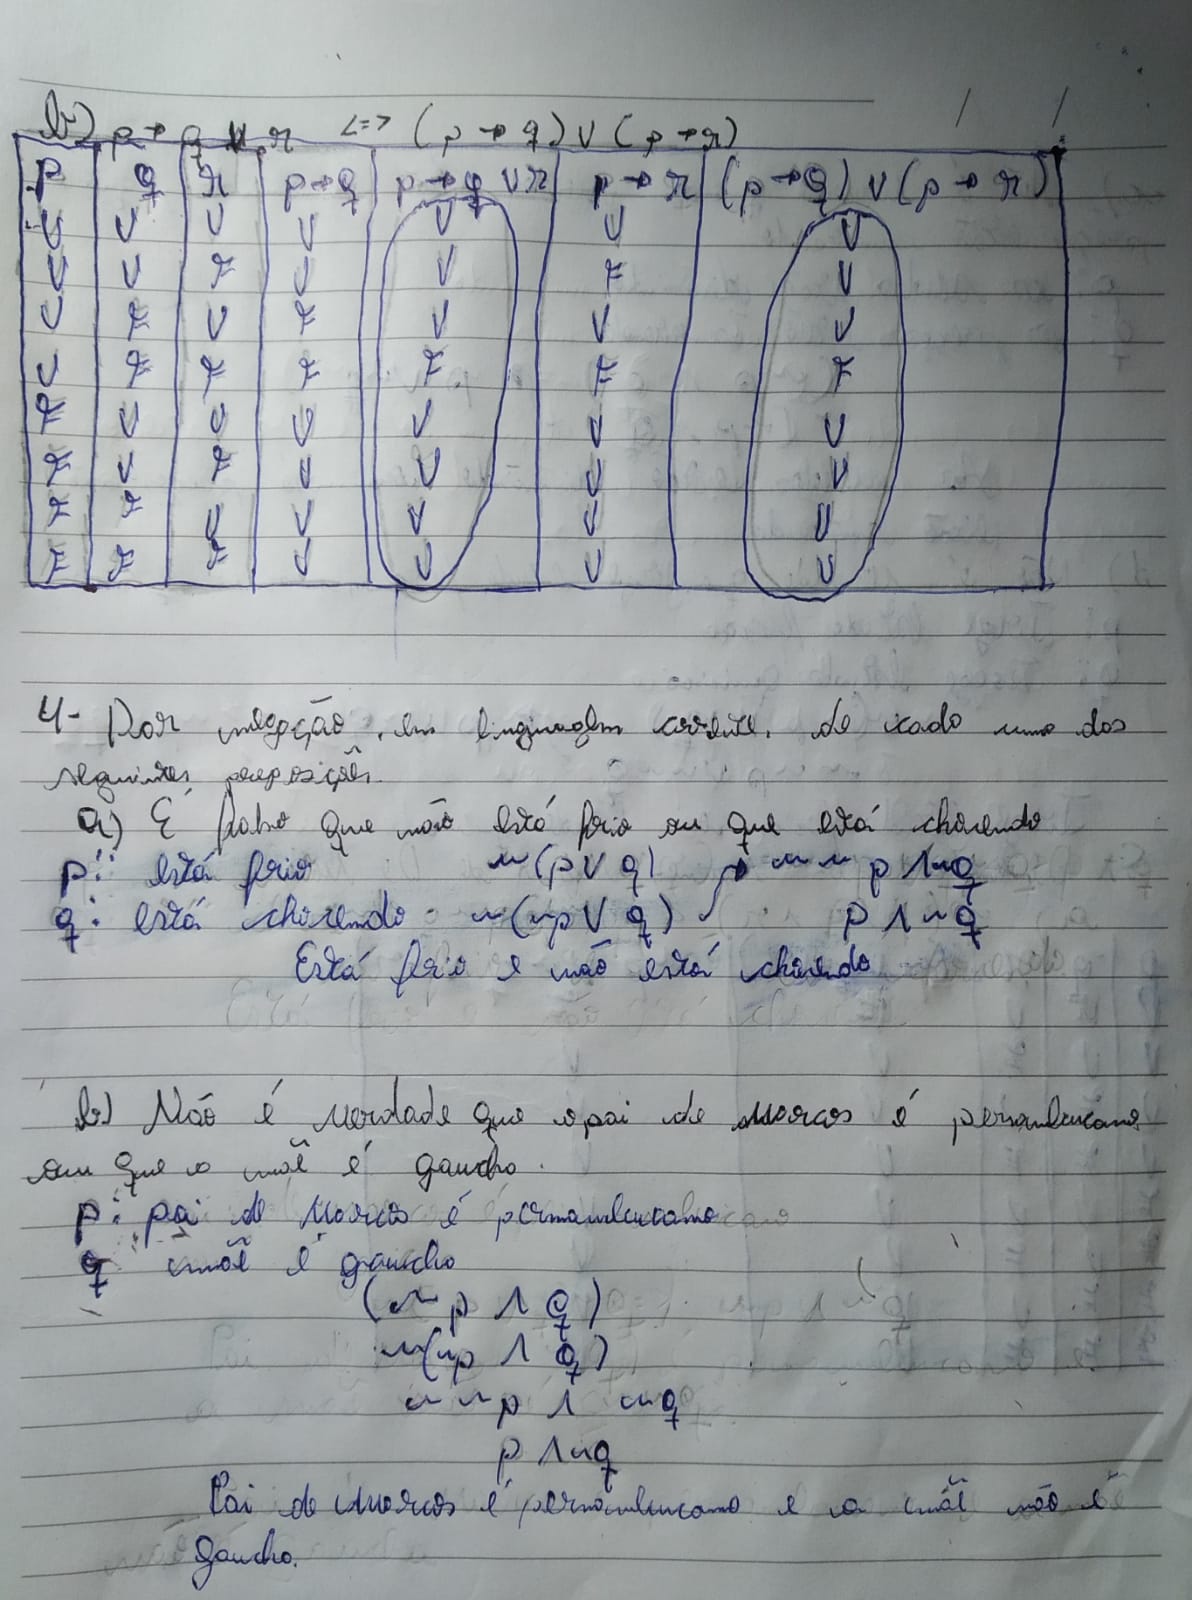 b) p → q v r <=> (p → q) v (p → r)
p q r p→q p→q v r p → r (p→q) v (p → r)
V V V V V V V
V V F V V F V
V F V F V V V
V F F F F F F
F V V V V V V
F V F V V V V
F F V V V V V
F F F V V V V
4- Dar negação, em linguagem corrente, de cada uma das
seguintes proposições.
a) É falso que não está frio ou que está chovendo
p: está frio ~(p v q) → ~ ~ p ∧ ~q
q: está chovendo ~(~p v q) p ∧ ~q
Está frio e não está chovendo
b) Não é verdade que o pai de Marcos é pernambucano
ou que a mãe é gaucho.
p: pai de Marcos é pernambucano
q mãe é gaucho
(~ p ∧ q)
~(~p ∧ q)
~ ~p ∧ ~q
p ∧ ~q
Pai de Marcos é pernambucano e a mãe não é
gaucho.